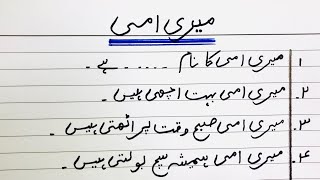 میری امی
۱. میری امی کا نام ..... ہے۔
۲. میری امی بہت اچھی ہیں۔
۳. میری امی صبح وقت پر اٹھتی ہیں۔
۴. میری امی ہمیشہ سچ بولتی ہیں۔